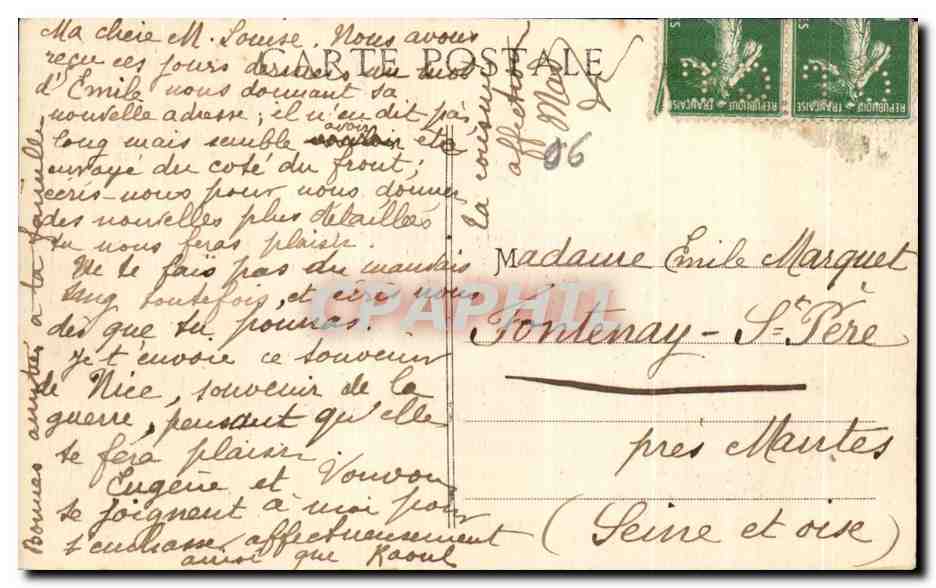 CARTE POSTALE
Ma chère M. Louise. Nous avons
reçu ces jours derniers un mot
d'Emile nous donnant sa
nouvelle adresse ; il n'en dit pas
long mais semble avoir été
envoyé du coté du front ;
écris-nous pour nous donner
des nouvelles plus détaillées
tu nous feras plaisir.
Ne te fais pas du mauvais
sang toutefois, et écris nous
dès que tu pourras.
Je t'envoie ce souvenir
de Nice, souvenir de la
guerre, pensant qu'elle
te fera plaisir.
Eugène et Vonvon
se joignent à moi pour
t'embrasser affectueusement
ainsi que Raoul
Bonnes amitiés à ta famille
ta cousine
affectionnée
06
Madame Emile Marquet
Fontenay - St Père
près Mantes
(Seine et oise)
REPUBLIQUE FRANÇAISE
REPUBLIQUE FRANÇAISE
CPAPHIL